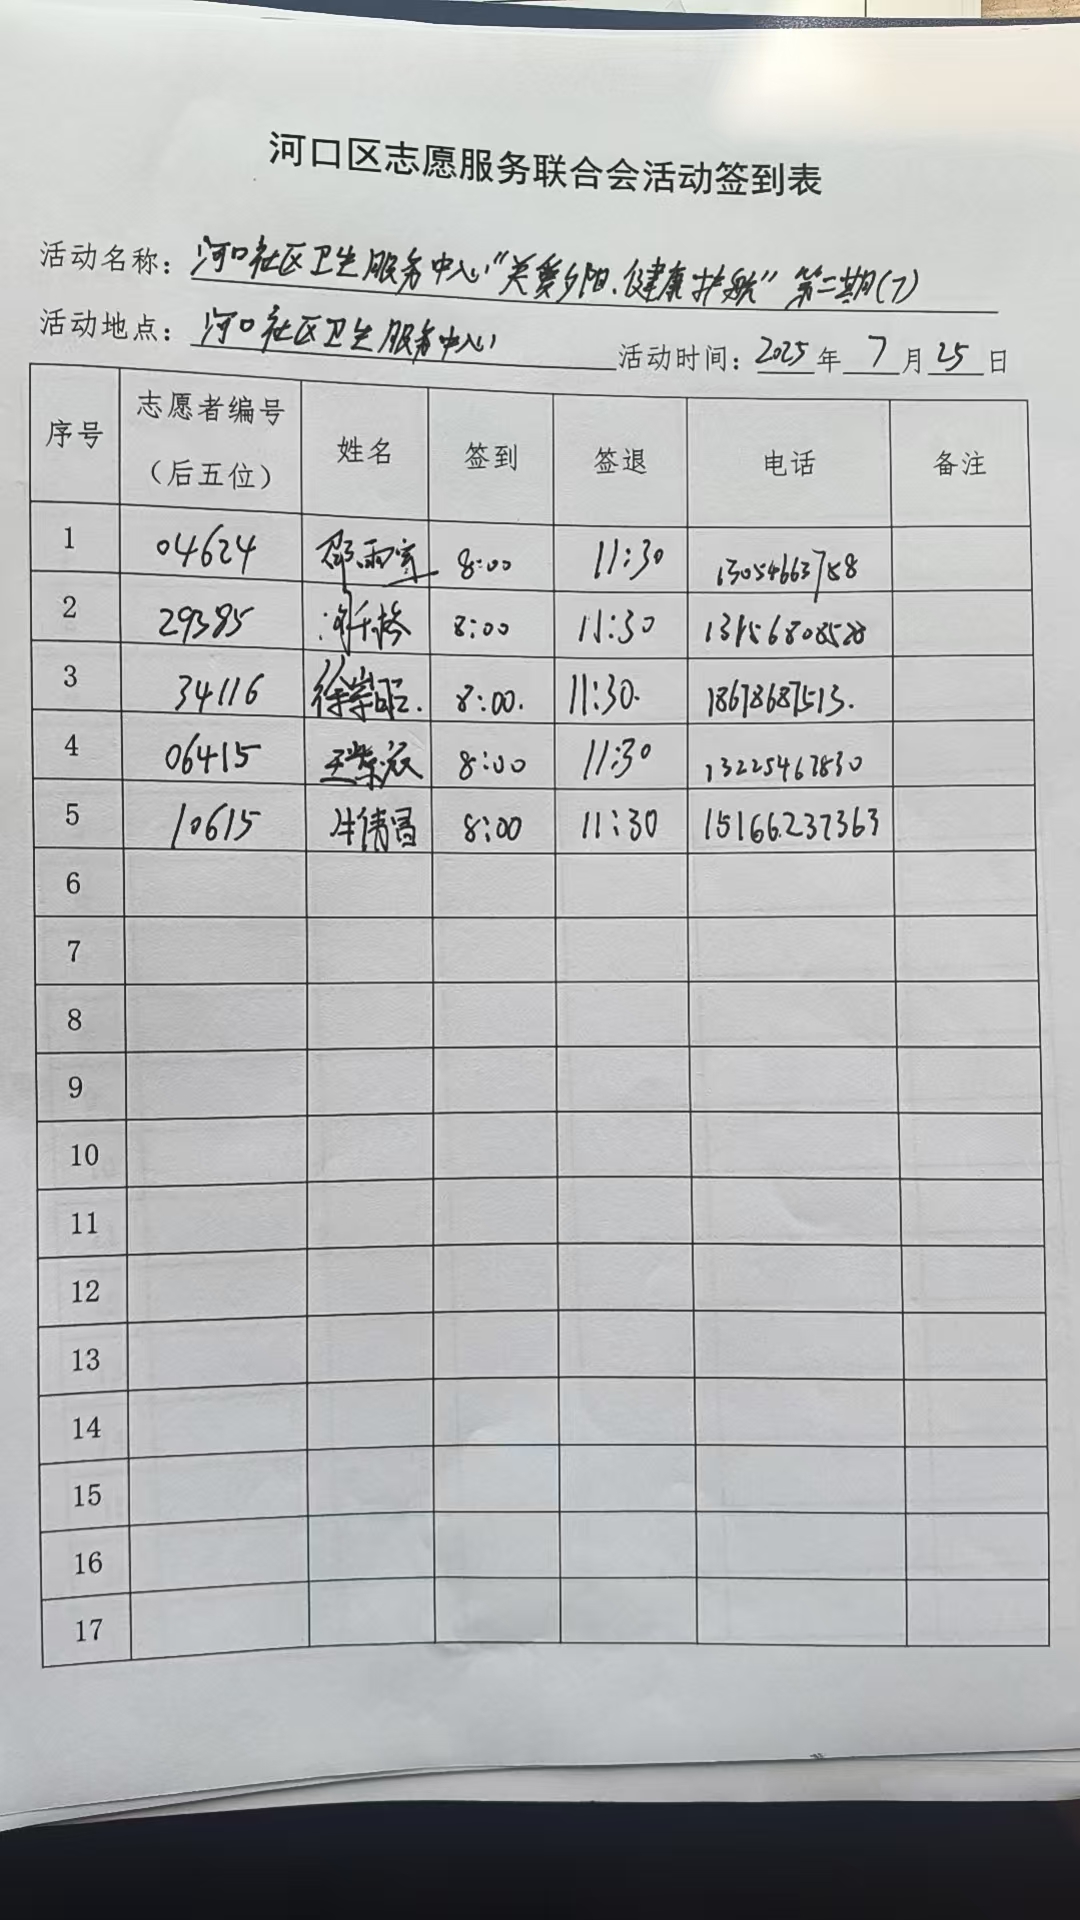 河口区志愿服务联合会活动签到表
活动名称：河口社区卫生服务中心“关爱夕阳.健康护航”第二期(7)
活动地点：河口社区卫生服务中心 活动时间：2025年7月25日
序号 志愿者编号（后五位） 姓名 签到 签退 电话 备注
1 04624 邵雨寒 8:00 11:30 13054663758
2 29385 8:00 11:30 13156808528
3 34116 8:00. 11:30. 18678687513.
4 06415 8:00 11:30
5 10615 牛倩 8:00 11:30 15166237363
6
7
8
9
10
11
12
13
14
15
16
17